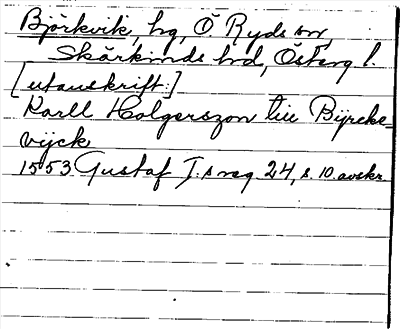 Björkvik, hg, Ö. Ryds sn,
Skärkinds hd, Österg l.
[utanskrift:]
Karll Holgerszon till Bijrcke-
vijck
1553 Gustaf I:s reg. 24, s. 10. avskr.